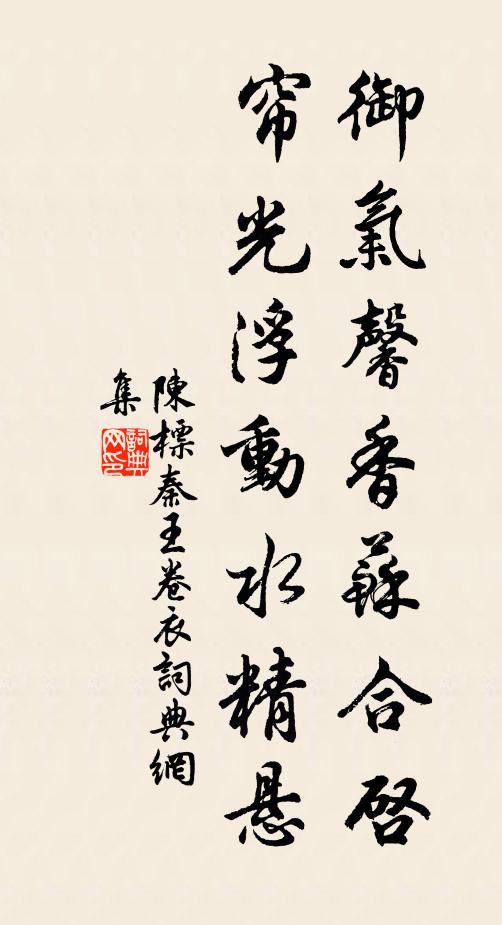 御氣馨香蘇合啓
帘光浮動水精悬
陳標秦王卷衣詞典網
集
詞典网印